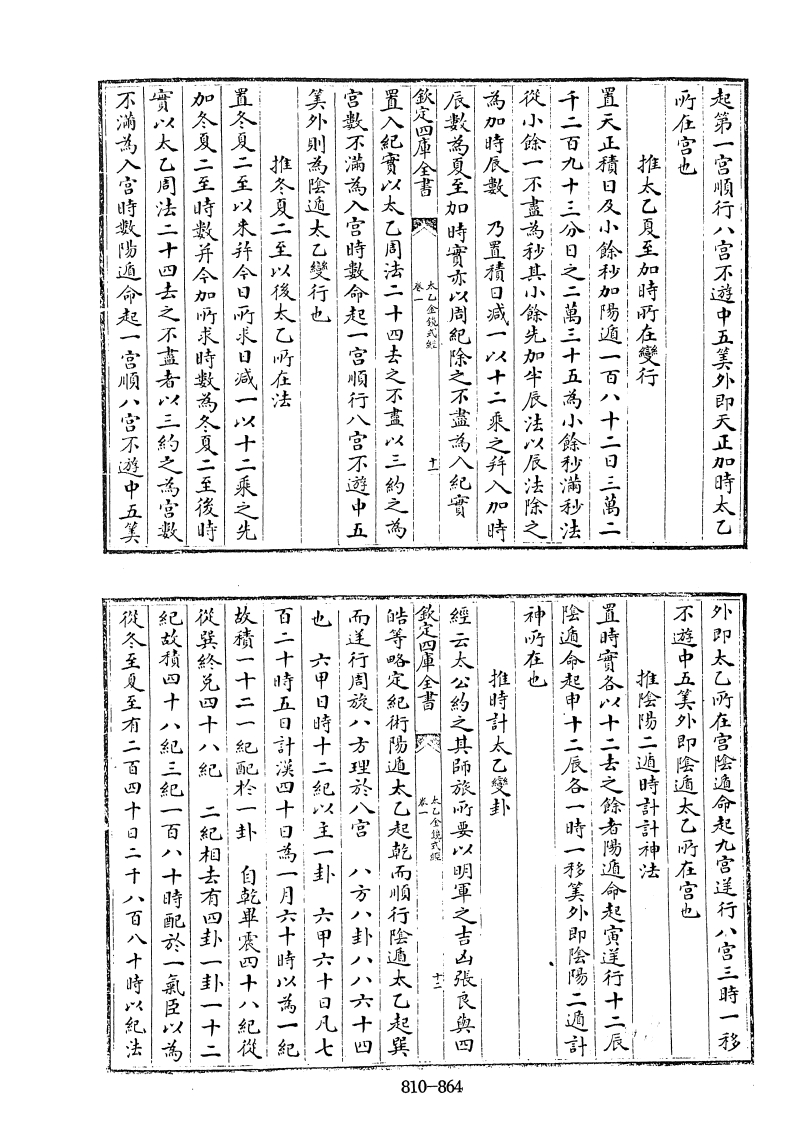 起第一宮順行八宮不遊中五筭外即天正加時太乙
所在宮也
推太乙夏至加時所在變行
置天正積日及小餘秒加陽遁一百八十二日三萬二
千二百九十三分日之二萬三十五為小餘秒滿秒法
從小餘一不盡為秒其小餘先加半辰法以辰法除之
為加時辰數　乃置積日減一以十二乘之并入加時
辰數為夏至加時實亦以周紀除之不盡為入紀實
欽定四庫全書
太乙金鏡式經
卷一
十一
置入紀實以太乙周法二十四去之不盡以三約之為
宮數不滿為入宮時數命起一宮順行八宮不遊中五
筭外則為陰遁太乙變行也
推冬夏二至以後太乙所在法
置冬夏二至以來并今日所求日減一以十二乘之先
加冬夏二至時數并今加所求時數為冬夏二至後時
實以太乙周法二十四去之不盡者以三約之為宮數
不滿為入宮時數陽遁命起一宮順八宮不遊中五筭
外即太乙所在宮陰遁命起九宮逆行八宮三時一移
不遊中五筭外即陰遁太乙所在宮也
推陰陽二遁時計計神法
置時實各以十二去之餘者陽遁命起寅逆行十二辰
陰遁命起申十二辰各一時一移筭外即陰陽二遁計
神所在也
推時計太乙變卦
經云太公約之其師旅所要以明軍之吉凶張良與四
欽定四庫全書
太乙金鏡式經
卷一
十二
皓等略定紀術陽遁太乙起乾而順行陰遁太乙起巽
而逆行周旋八方理於八宮　八方八卦八八六十四
也　六甲日時十二紀以主一卦　六甲六十日凡七
百二十時五日計漢四十日為一月六十時以為一紀
故積一十二一紀配於一卦　自乾畢震四十八紀從
從巽終兌四十八紀　二紀相去有四卦一卦一十二
紀故積四十八紀三紀一百八十時配於一氣臣以為
從冬至夏至有二百四十日二千八百八十時以紀法
810-864